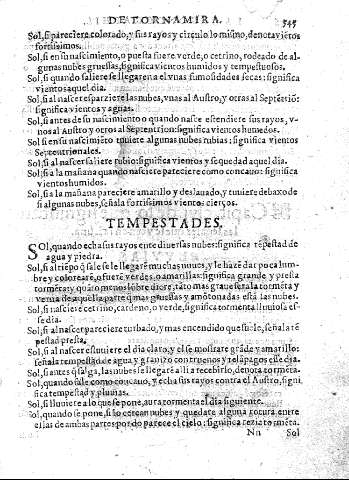 DE TORNAMIRA. 545
Sol, si pareciere colorado, y sus rayos y circulo lo mismo, denota viẽtos
fortissimos.
Sol, si en su nacimiento, o puesta fuere verde, o cetrino, rodeado de al-
gunas nubes gruessas, significa vientos humidos y tempestuosos.
Sol, si quando saliere se llegaren a el vnas fumosidades secas: significa
vientos aquel dia.
Sol, si al nacer esparziere las nubes, vnas al Austro, y otras al Septẽtriõ:
significa vientos y aguas.
Sol, si antes de su nacimiento o quando nasce estendiere sus rayos, v-
nos al Austro y otros al Septentrion: significa vientos humedos.
Sol, si en su nacimiẽto tuuiere algunas nubes rubias; significa vientos
Septentrionales.
Sol, si al nacer saliere rubio: significa vientos y sequedad aquel dia.
Sol, si a la mañana quando nasce pareciere como concauo: significa
vientos humidos.
Sol, si a la mañana pareciere amarillo y deslauado, y tuuiere debaxo de
si algunas nubes, señala fortissimos vientos cierços.
TEMPESTADES.
SOl, quando echa sus rayos entre diuersas nubes: significa tẽpestad de
agua y piedra.
Sol, si al tiẽpo q̃ sale se le llegarẽ muchas nuues, y le hazẽ dar poca lum-
bre y colorearẽ, o fuerẽ verdes, o amarillas: significa grande y presta
tormẽta: y quãto menos lõbre diere, tãto mas graue señala tormẽta y
vernia de aquella parte q̃ mas gruessas y amõtonadas està las nubes.
Sol, si nasciere cetrino, cardeno, o verde, significa tormenta lluuiosa es-
se dia.
Sol, si al nascer pareciere turbado, y mas encendido que suele, señala tẽ
pestad presta.
Sol, si al nascer estuuiere el dia claro, y el se mostrare grãde y amarillo:
señala tempestad de agua y granizo con truenos y relãpagos esse dia.
Sol, si antes q̃ salga, las nubes se llegarẽ alli a recebirlo, denota tormẽta.
Sol, quando sale como concauo, y echa sus rayos contra el Austro, signi
fica tempestad y pluuias.
Sol, si lluuiere a lo que se pone, aura tormenta el dia siguiente.
Sol, quando se pone, si lo cercan nubes y quedare alguna rotura entre
ellas de ambas partes por do parece el cielo: significa rezia tormẽta.
Nn Sol